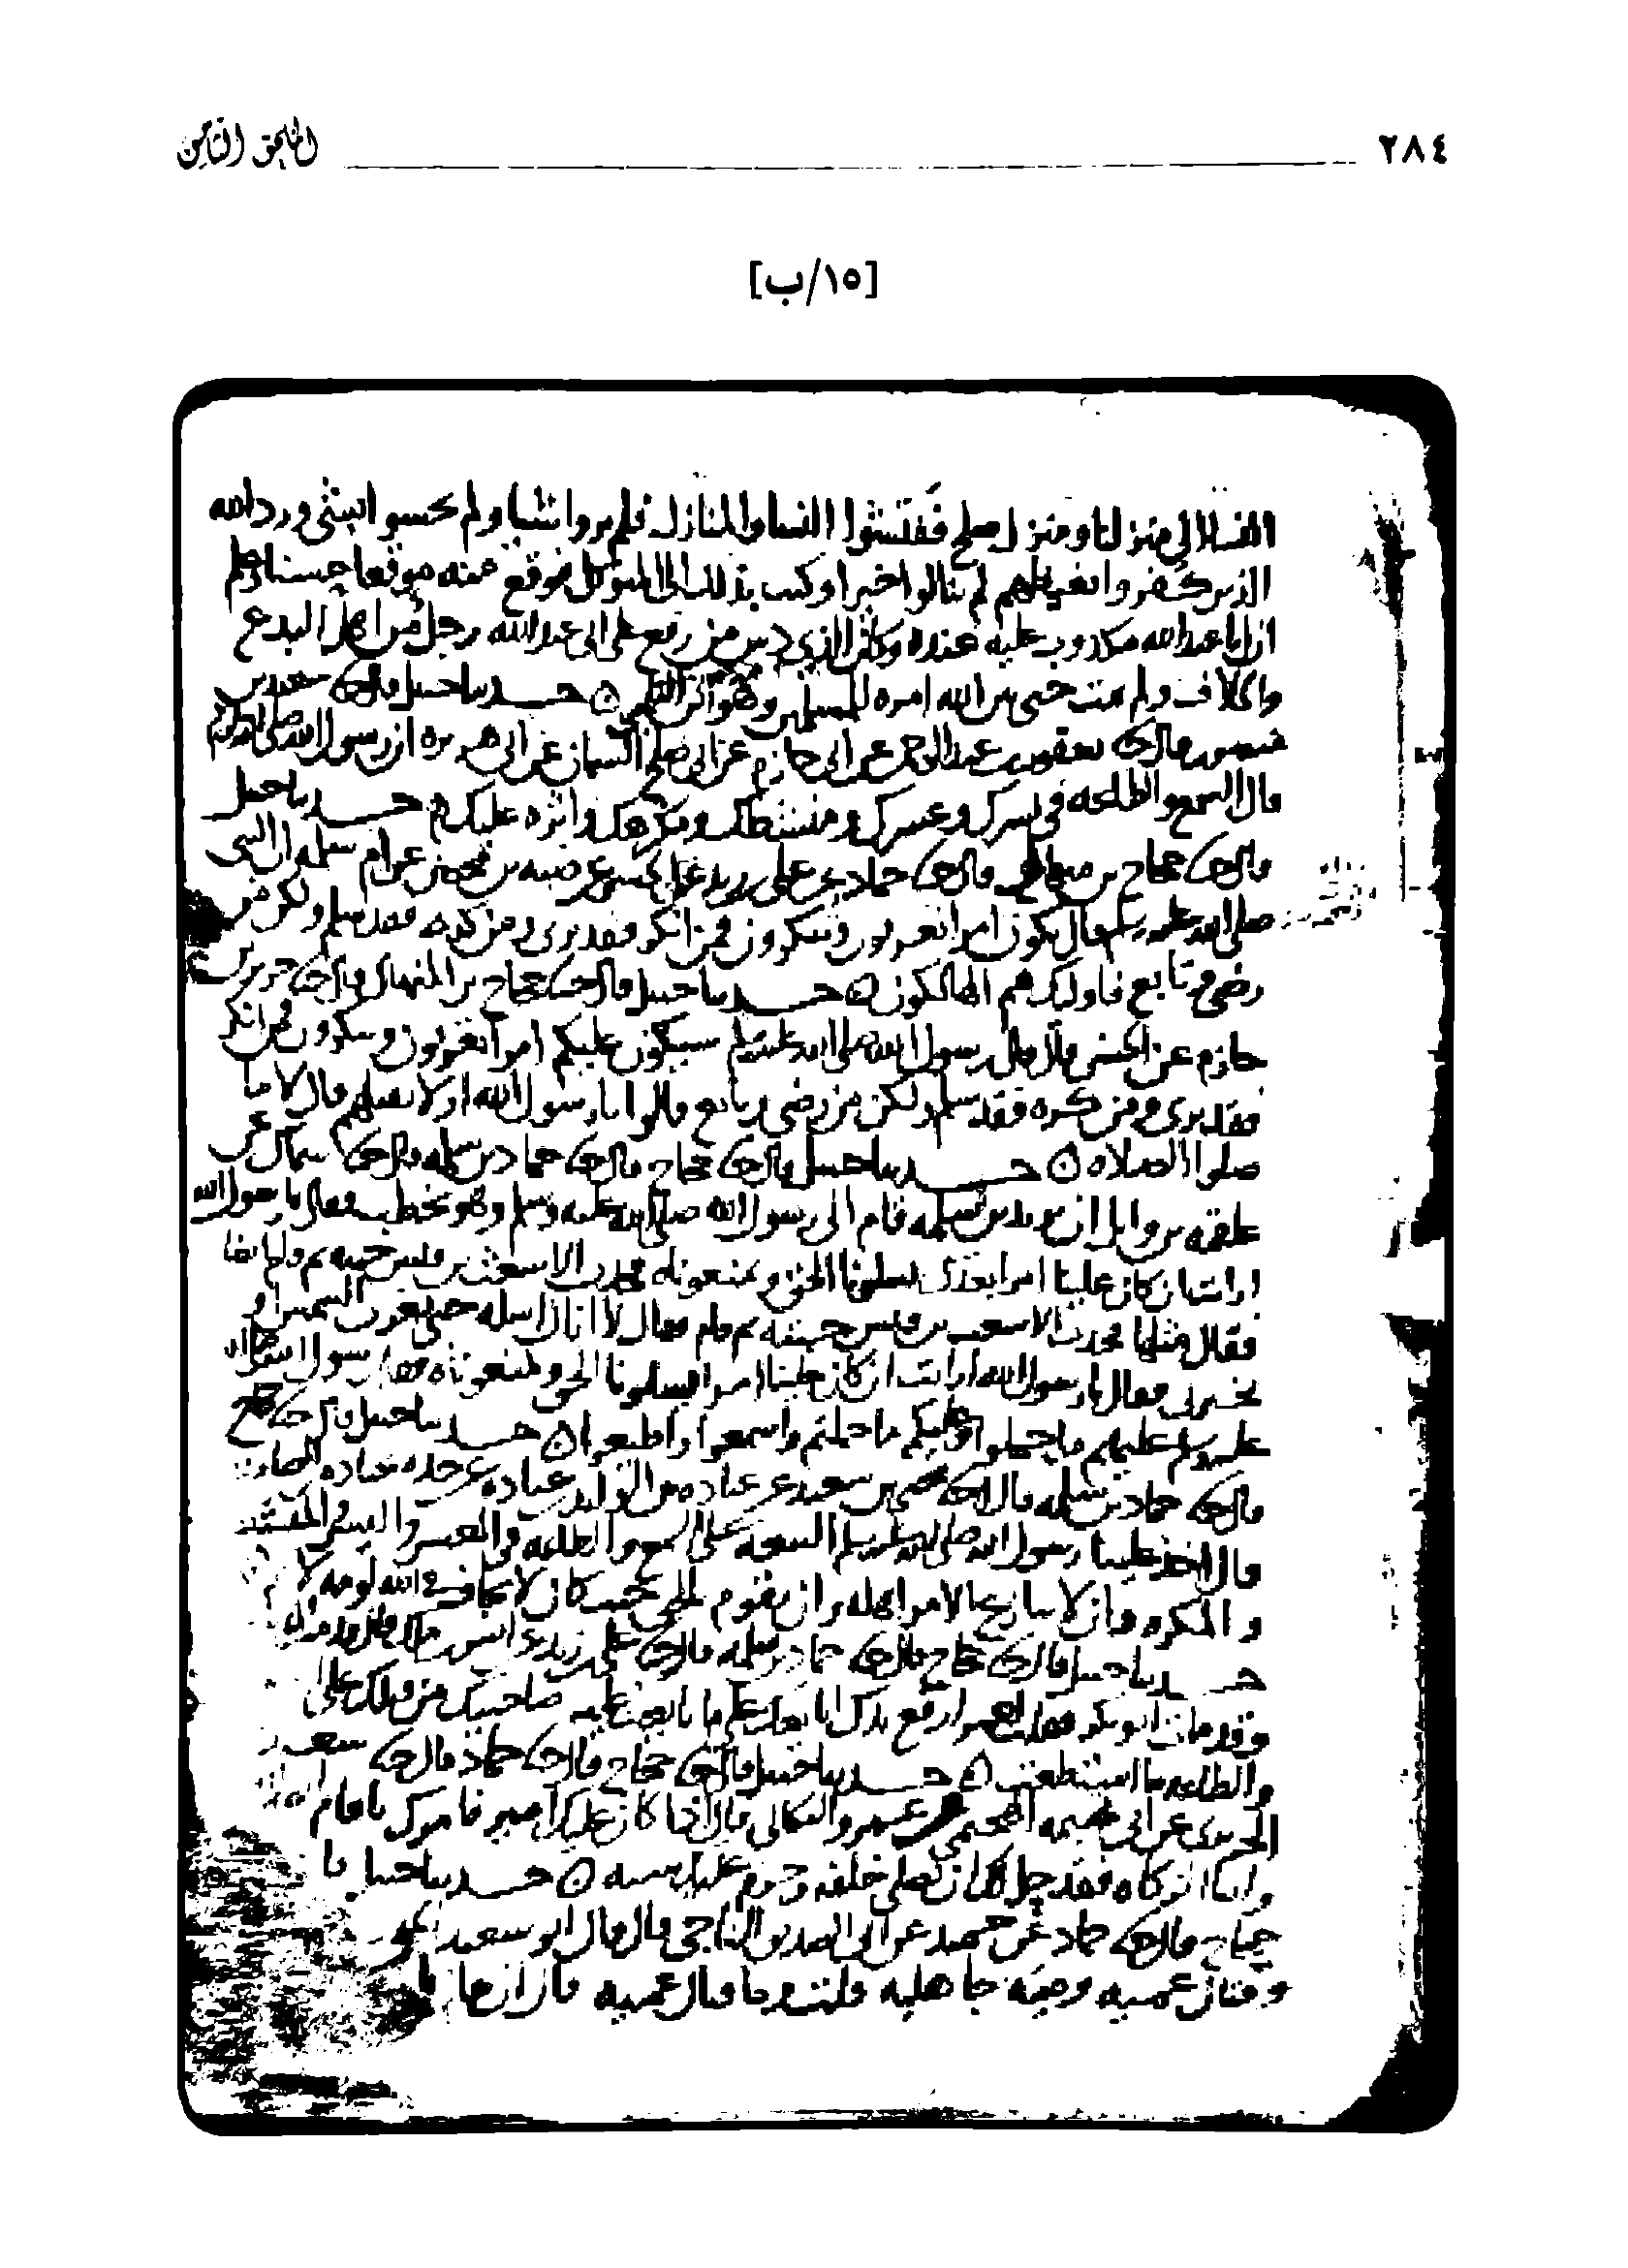 ٢٨٤
الملحق الثامن
[١٥/ب]
النسا الى منزلنا ومنزل صلح ففتشوا النسا والمنازل فلم يروا شيا ولم يحسوا بشي ورد الله
الذين كفروا بغيظهم لم ينالوا خيرا وكتب بذلك الى المتوكل فوقع منه موقعا حسنا وعلم
ان ابا عبد الله مكذوب عليه عنده وكان الذي دس من رفع على ابي عبد الله رجل من اهل البدع
والخلاف ولم يمت حتى بين الله امره للمسلمين وهو ابن الثلجي حدثنا حنبل قال حدثنا سعيد بن
منصور قال حدثنا يعقوب بن عبد الرحمن عن ابي حازم عن ابي صلح السمان عن ابي هريره ان رسول الله صلى الله عليه وسلم
قال السمع والطاعه في يسرك وعسرك ومنشطك ومكرهك واثره عليك حدثنا حنبل
قال حدثنا حجاج بن منهال قال حدثنا حماد عن علي بن زيد عن الحسن عن ضبه بن محصن عن ام سلمه ان النبي
صلى الله عليه وسلم قال يكون امرا تعرفون وتنكرون فمن انكر فقد بري ومن كره فقد سلم ولكن من
رضي وتابع فاوليك هم الهالكون حدثنا حنبل قال حدثنا حجاج بن المنهال قال حدثنا جرير بن
حازم عن الحسن قال قال رسول الله صلى الله عليه وسلم سيكون عليكم امرا تعرفون وتنكرون فمن انكر
فقد بري ومن كره فقد سلم ولكن من رضي وتابع قالوا يا رسول الله افلا نقتلهم قال لا ما
صلوا الصلاه حدثنا حنبل قال حدثنا حجاج قال حدثنا حماد بن سلمه قال حدثنا سماك عن
علقمه بن وايل ان يزيد بن سلمه قام الى رسول الله صلى الله عليه وسلم وهو يخطب فقال يا رسول الله
ارايت ان كان علينا امرا بعدك يسلونا الحق ويمنعوناه فجذب الاشعث بن قيس جبته ثم قام ايضا
فقال مثلها فجذب الاشعث بن قيس جبته ثم قام فقال لا ازال اسله حتى تغرب الشمس او
يخبرني فقال يا رسول الله ارايت ان كان علينا امرا يسلونا الحق ويمنعوناه فقال رسول الله صلى الله
عليه وسلم عليهم ما حملوا وعليكم ما حملتم واسمعوا واطيعوا حدثنا حنبل قال حدثنا حجاج
قال حدثنا حماد بن سلمه قال حدثنا يحيى بن سعيد عن عباده بن الوليد بن عباده عن جده عباده الصامت
قال اخذ علينا رسول الله صلى الله عليه وسلم البيعه على السمع والطاعه في العسر واليسر والمنشط
والمكره وان لا ننازع الامر اهله وان نقوم بالحق حيث كان لا نخاف في الله لومه لايم
حدثنا حنبل قال حدثنا حجاج قال حدثنا حماد بن سلمه قال حدثنا علي بن زيد عن انس قال قدمت
وقد مات ابو بكر فقلت لعمر ارفع يدك ابايعك على ما بايعت عليه صاحبيك من قبلك على
والطاعه ما استطعت حدثنا حنبل قال حدثنا حجاج قال حدثنا حماد قال حدثنا سعيد
الجريري عن ابي تميمه الهجيمي عن عمرو البكالي قال اذا كان عليك امير فامرك باقام
وايتا الزكاه فقد حل لك ان تصلي خلفه وحرم عليك سبه حدثنا حنبل
حجاج قال حدثنا حماد عن حميد عن ابي الصديق الناجي قال قال ابو سعيد
وقتال عميه وميته جاهليه قلت وما قتال عميه قال